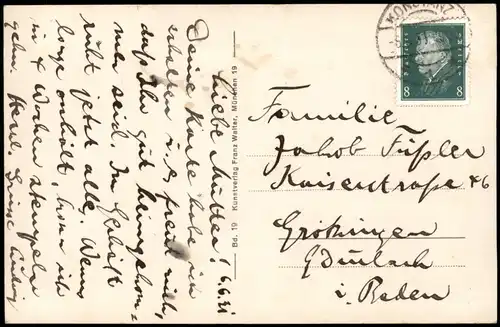 6.6.31
Liebe Mutter!
Deine Karte habe ich
erhalten u. s. freut mich,
daß Ihr gut heimgekom-
men seid. Im Geschäft
ruht jetzt alles. Wenns
lange anhält, kann ich
in 4 Wochen stempeln
gehn. Herzl. Grüsse Ludwig
Bd. 19 Kunstverlag Franz Walter, München 19
KONSTANZ
8 8
Familie
Jakob Füßler
Kaiserstraße 46
Grötzingen
b/Durlach
i. Baden